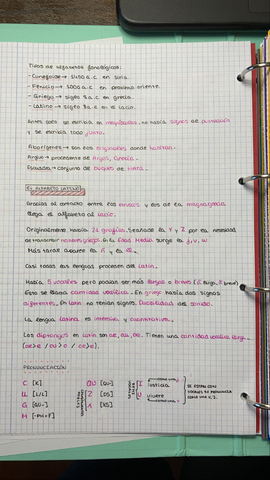 Tipos de alfabetos fonológicos:
- Cuneiforme → 3400 a.c en Siria.
- Fenicio → 1000 a.c en próximo oriente.
- Griego → siglo 9 a.c en Grecia.
- Latino → siglo 7 a.c en el Lacio.
Antes todo se escribía en mayúsculas, no había signos de puntuación
y se escribía todo junto.
Aborígenes → son los originales donde habitan.
Argivo → procedente de Argos, Grecia.
Escuadra → conjunto de buques de guerra.
EL ALFABETO LATINO
Gracias al contacto entre los etruscos y los de la magna grecia
llega el alfabeto al Lacio.
Originalmente había 21 grafías. Se añade la Y y Z por la necesidad
de transcribir nombres griegos. En la Edad Media surge la J, U, W
Más tarde aparece la Ñ y la
Casi todas las lenguas proceden del latín.
Había 5 vocales pero podían ser más largas o breves
Esto se llama cantidad vocálica. En griego había dos signos
diferentes. En latín no tenían signos. Dualidad del sonido.
La lengua latina es intensiva y cuantitativa.
Los diptongos en latín son ae, au, oe. Tienen una cantidad vocálica larga.
PRONUNCIACIÓN
C [K]
LL [L/L]
G [GU-]
H
QU [QU-]
Z [DS]
X [KS]
I
iustitia
U
vivere
SE ESCRIBE CON
VOCALES SE PRONUNCIA
COMO UNA